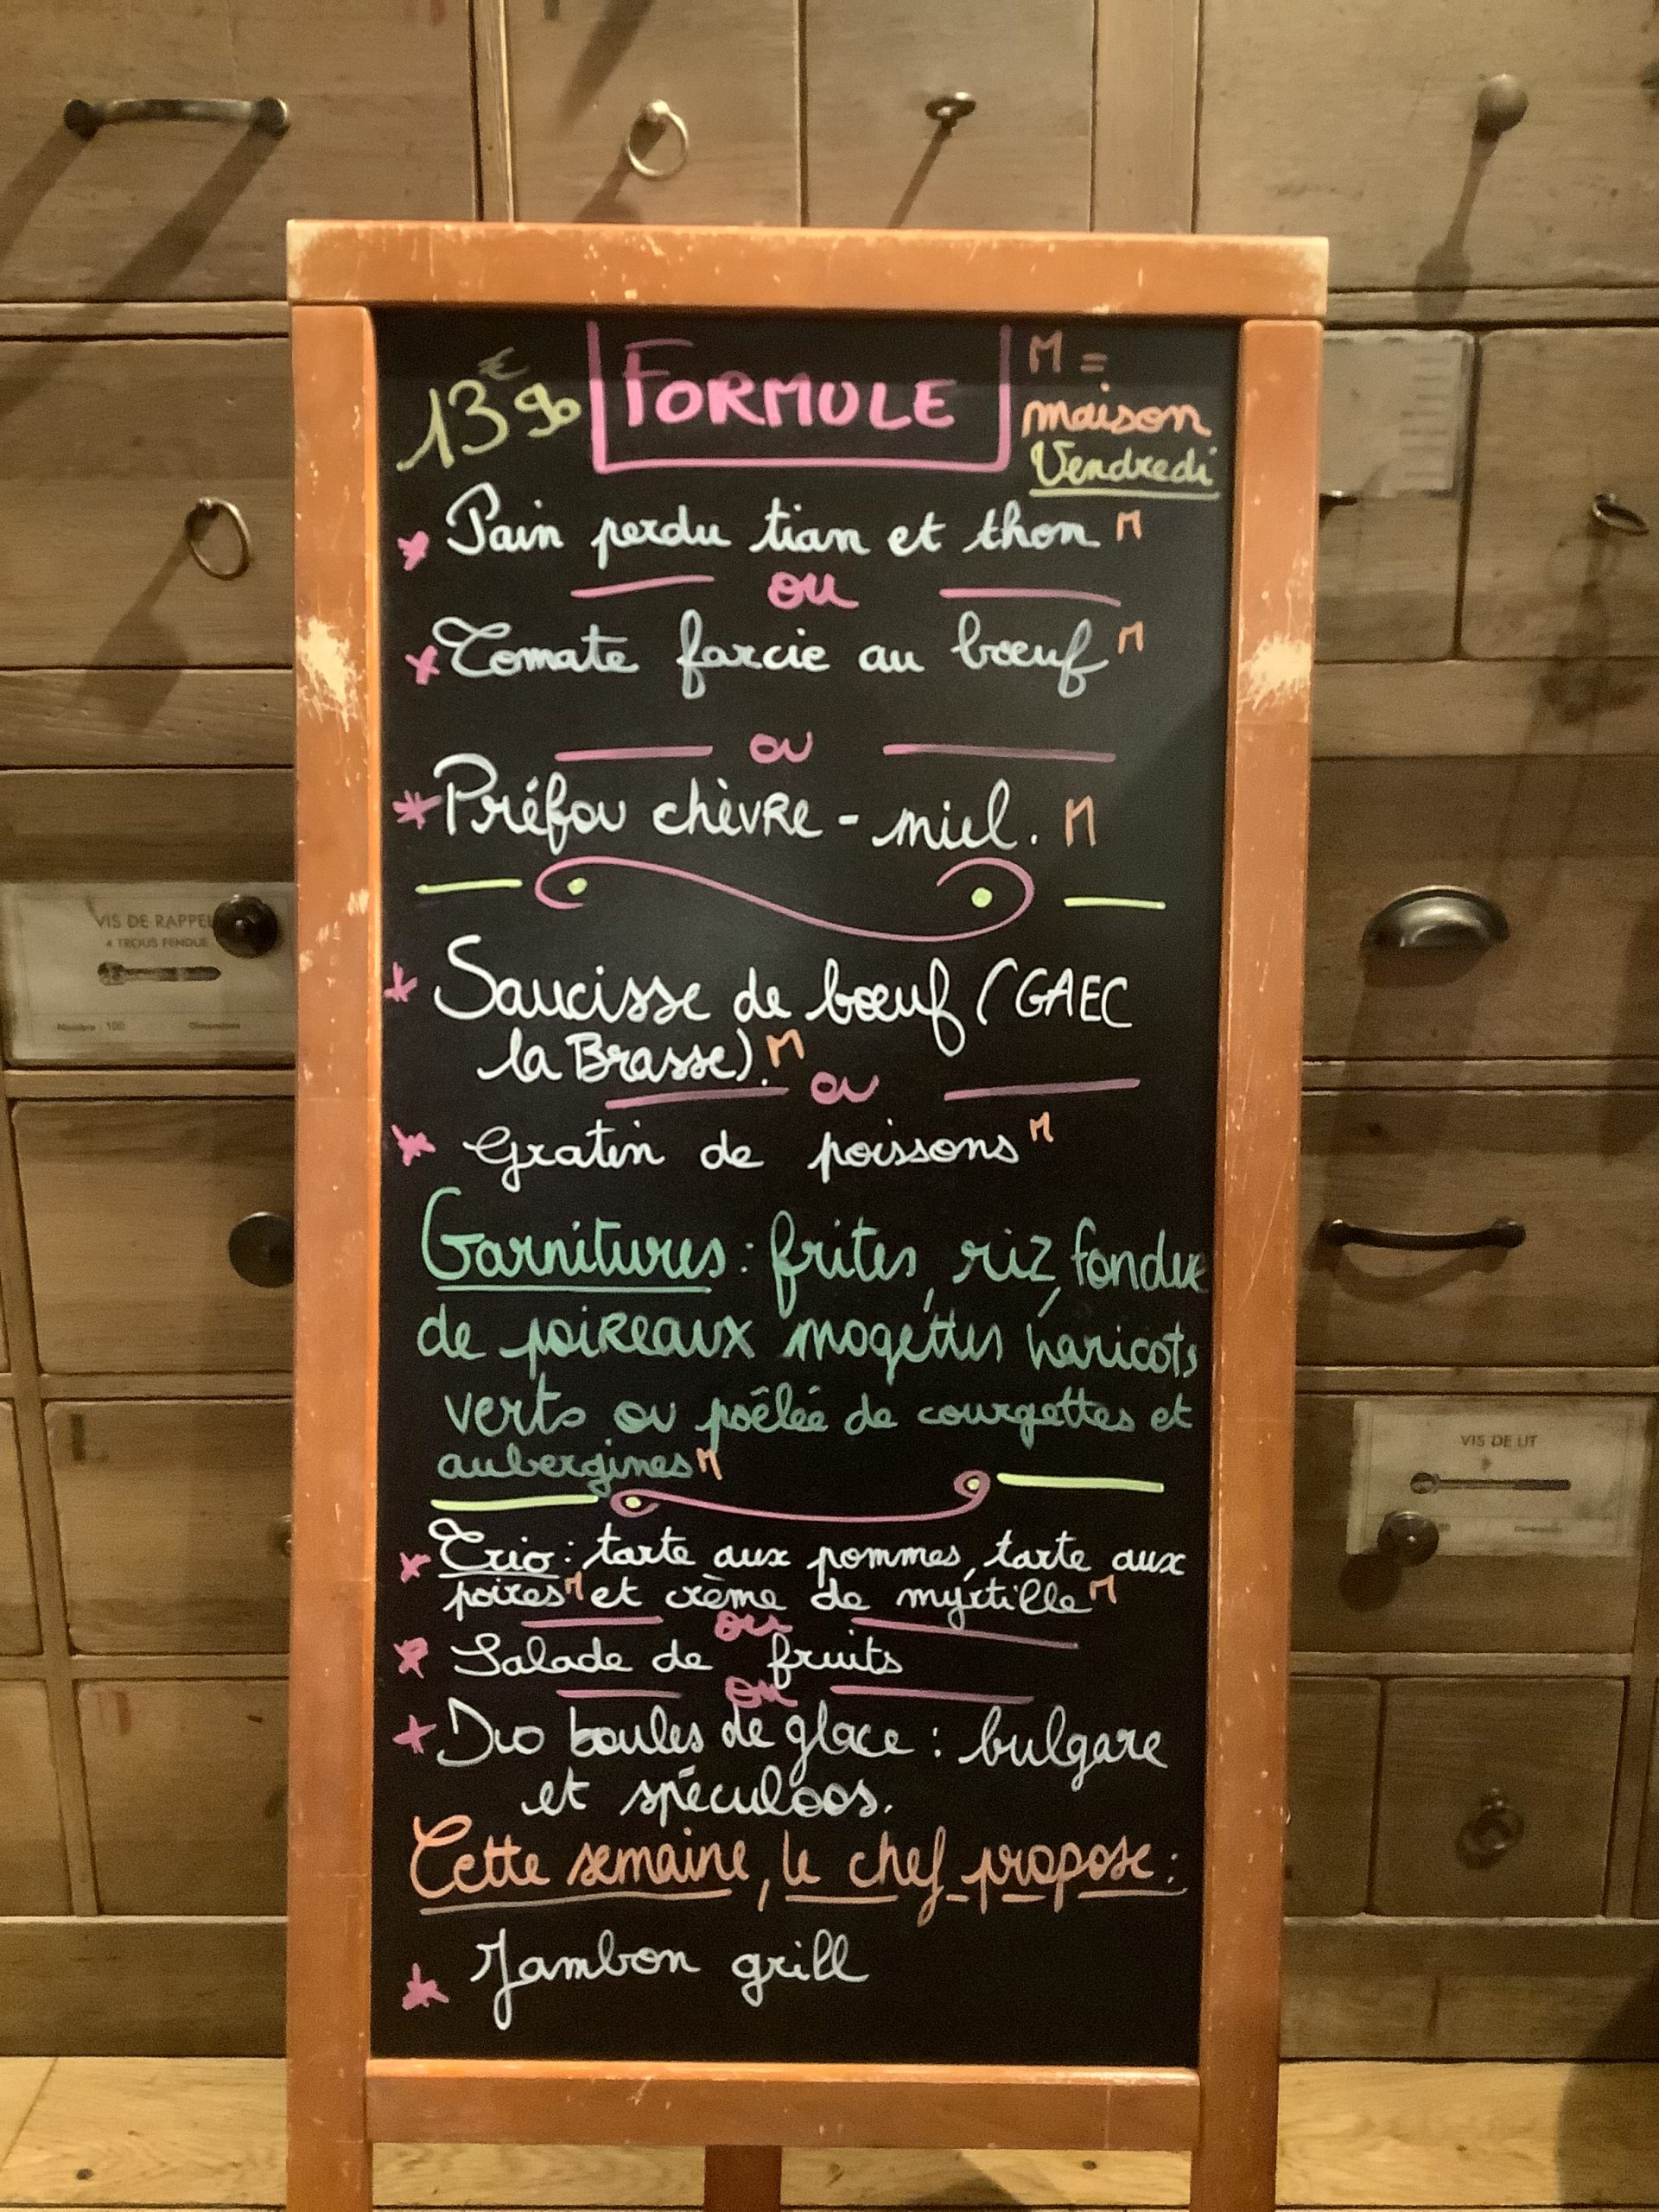 13€90 FORMULE M =
maison
Vendredi
* Pain perdu tian et thon M
ou
* Tomate farcie au bœuf M
ou
* Préfou chèvre - miel. M
* Saucisse de bœuf (GAEC
la Brasse). M
ou
* Gratin de poissons M
Garnitures : frites, riz, fondue
de poireaux mogettes haricots
verts ou poêlée de courgettes et
aubergines M
* Trio : tarte aux pommes, tarte aux
poires M et crème de myrtille M
ou
* Salade de fruits
ou
* Duo boules de glace : bulgare
et spéculoos.
Cette semaine, le chef propose :
* Jambon grill
VIS DE RAPPEL
4 TROUS FENDUE
Nombre : 100
VIS DE LIT